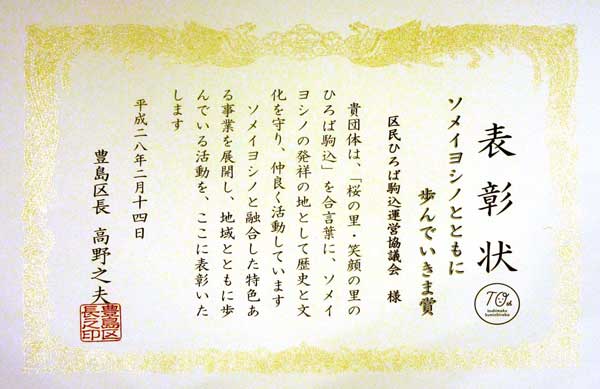 表彰状
ソメイヨシノとともに
歩んでいきま賞
区民ひろば駒込運営協議会 様
貴団体は、「桜の里・笑顔の里の
ひろば駒込」を合言葉に、ソメイ
ヨシノの発祥の地として歴史と文
化を守り、仲良く活動しています
ソメイヨシノと融合した特色あ
る事業を展開し、地域とともに歩
んでいる活動を、ここに表彰いた
します
平成二八年二月十四日
豊島区長 高野之夫
豊島区
長之印
70th